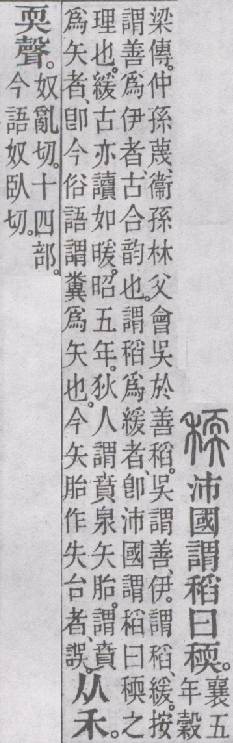 稬 沛國謂稻曰稬。襄五
年榖
梁傳。仲孫蔑、衞孫林父會吳於善稻。吳謂善、伊。謂稻、緩。按
謂善爲伊者、古合韵也。謂稻爲緩者、卽沛國謂稻曰稬之
理也。緩古亦讀如暖。昭五年。狄人謂賁泉矢胎。謂賁
爲矢者、卽今俗語謂糞爲矢也。今矢胎作失台者、誤。从禾。
耎聲。奴亂切。十四部。
今語奴臥切。